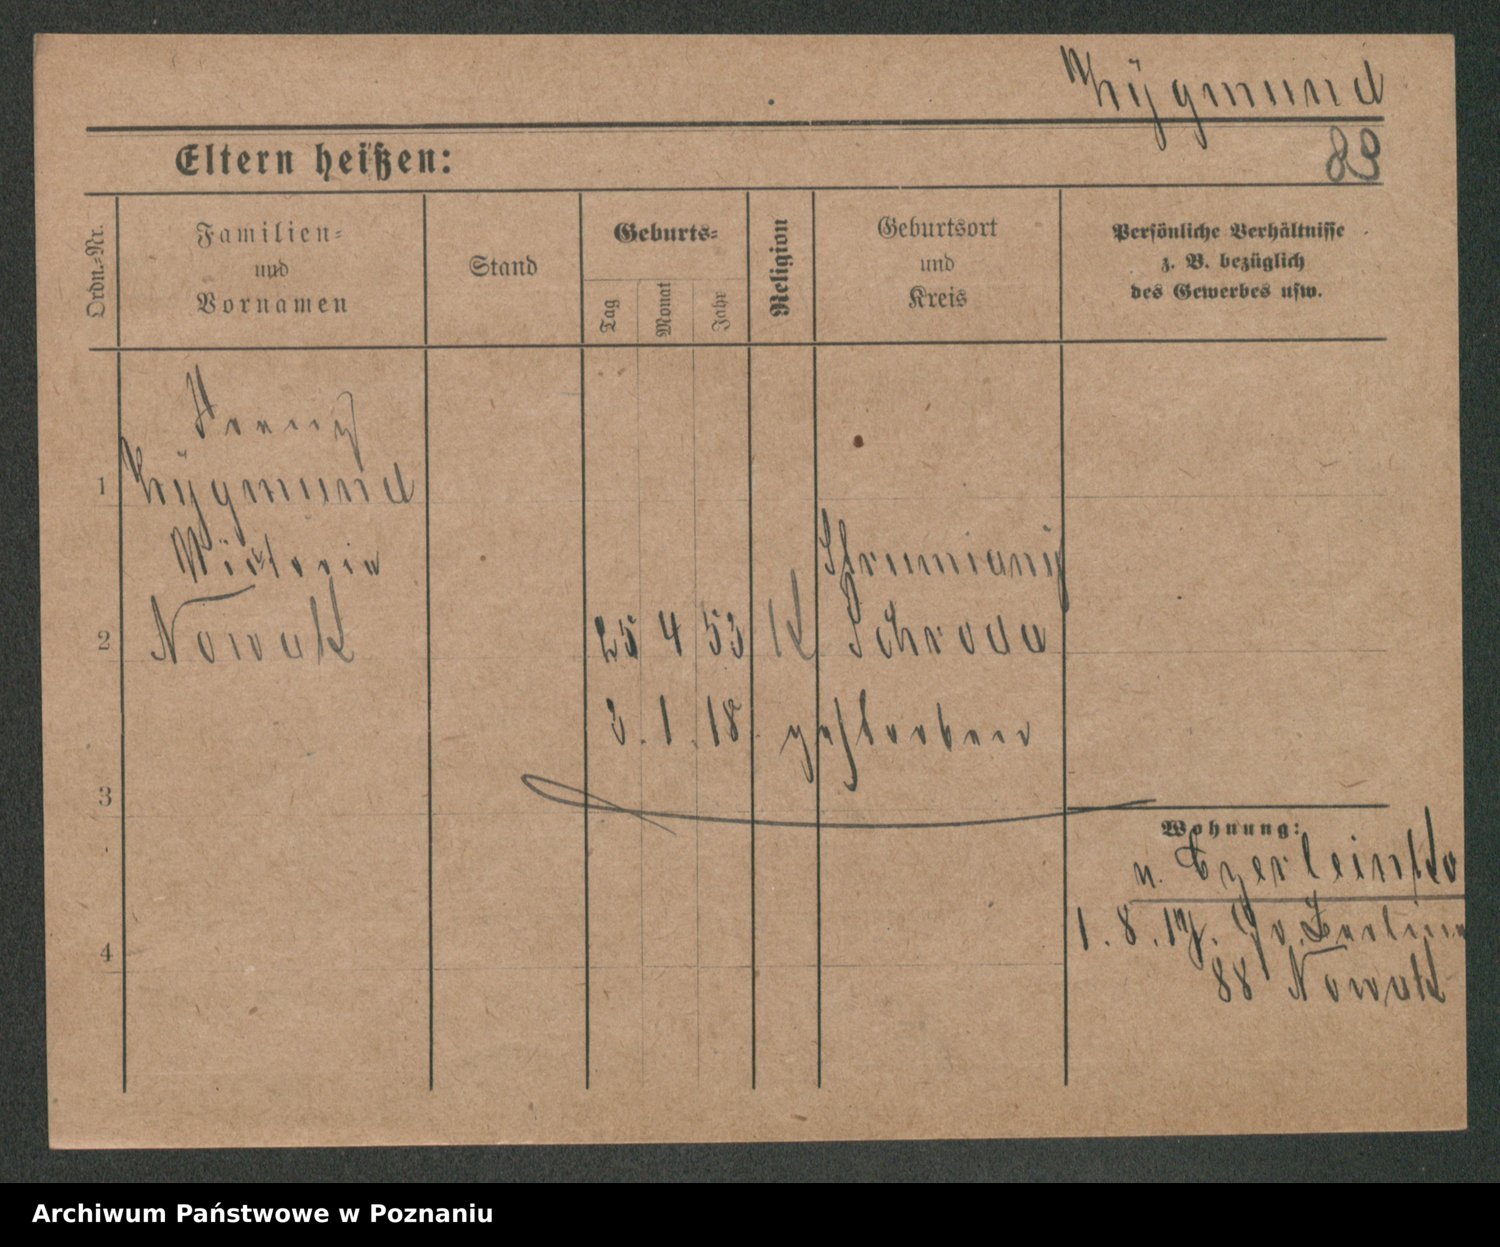 Zÿgmund
Eltern heißen:
83
Ordn.-Nr.
Familien-
und
Vornamen
Stand
Geburts-
Tag
Monat
Jahr
Religion
Geburtsort
und
Kreis
Persönliche Verhältnisse
z. B. bezüglich
des Gewerbes usw.
Franz
1 Zÿgmund
Victoria
2 Nowak 25 4 53 K Schroda
3. 1. 18. gestorben
3
Wohnung:
n. Czerleinko
4
1. 8. 17. Berliner
88 Nowak
Archiwum Państwowe w Poznaniu